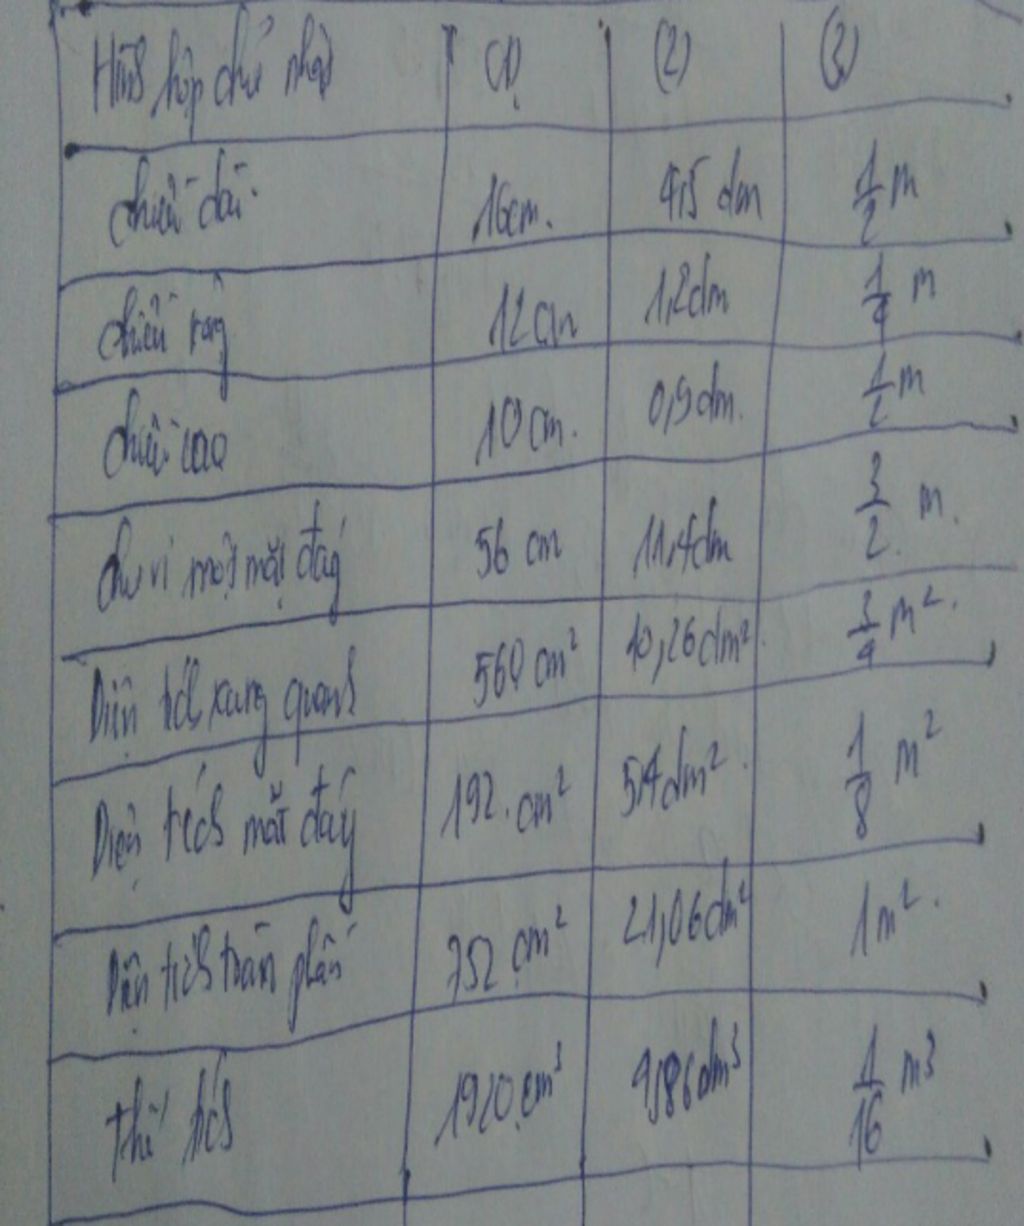 Hình hộp chữ nhật (1) (2) (3)
chiều dài 16cm. 4,5 dm 1/2 m
chiều rộng 12 cm 1,2dm 1/4 m
chiều cao 10 cm. 0,9dm. 1/2 m
chu vi một mặt đáy 56 cm 11,4dm 3/2 m.
Diện tích xung quanh 560 cm² 10,26dm². 3/4 m².
Diện tích mặt đáy 192. cm² 5,4dm². 1/8 m²
Diện tích toàn phần 752 cm² 21,06dm² 1m².
Thể tích 1920 cm³ 4,86dm³ 1/16 m³